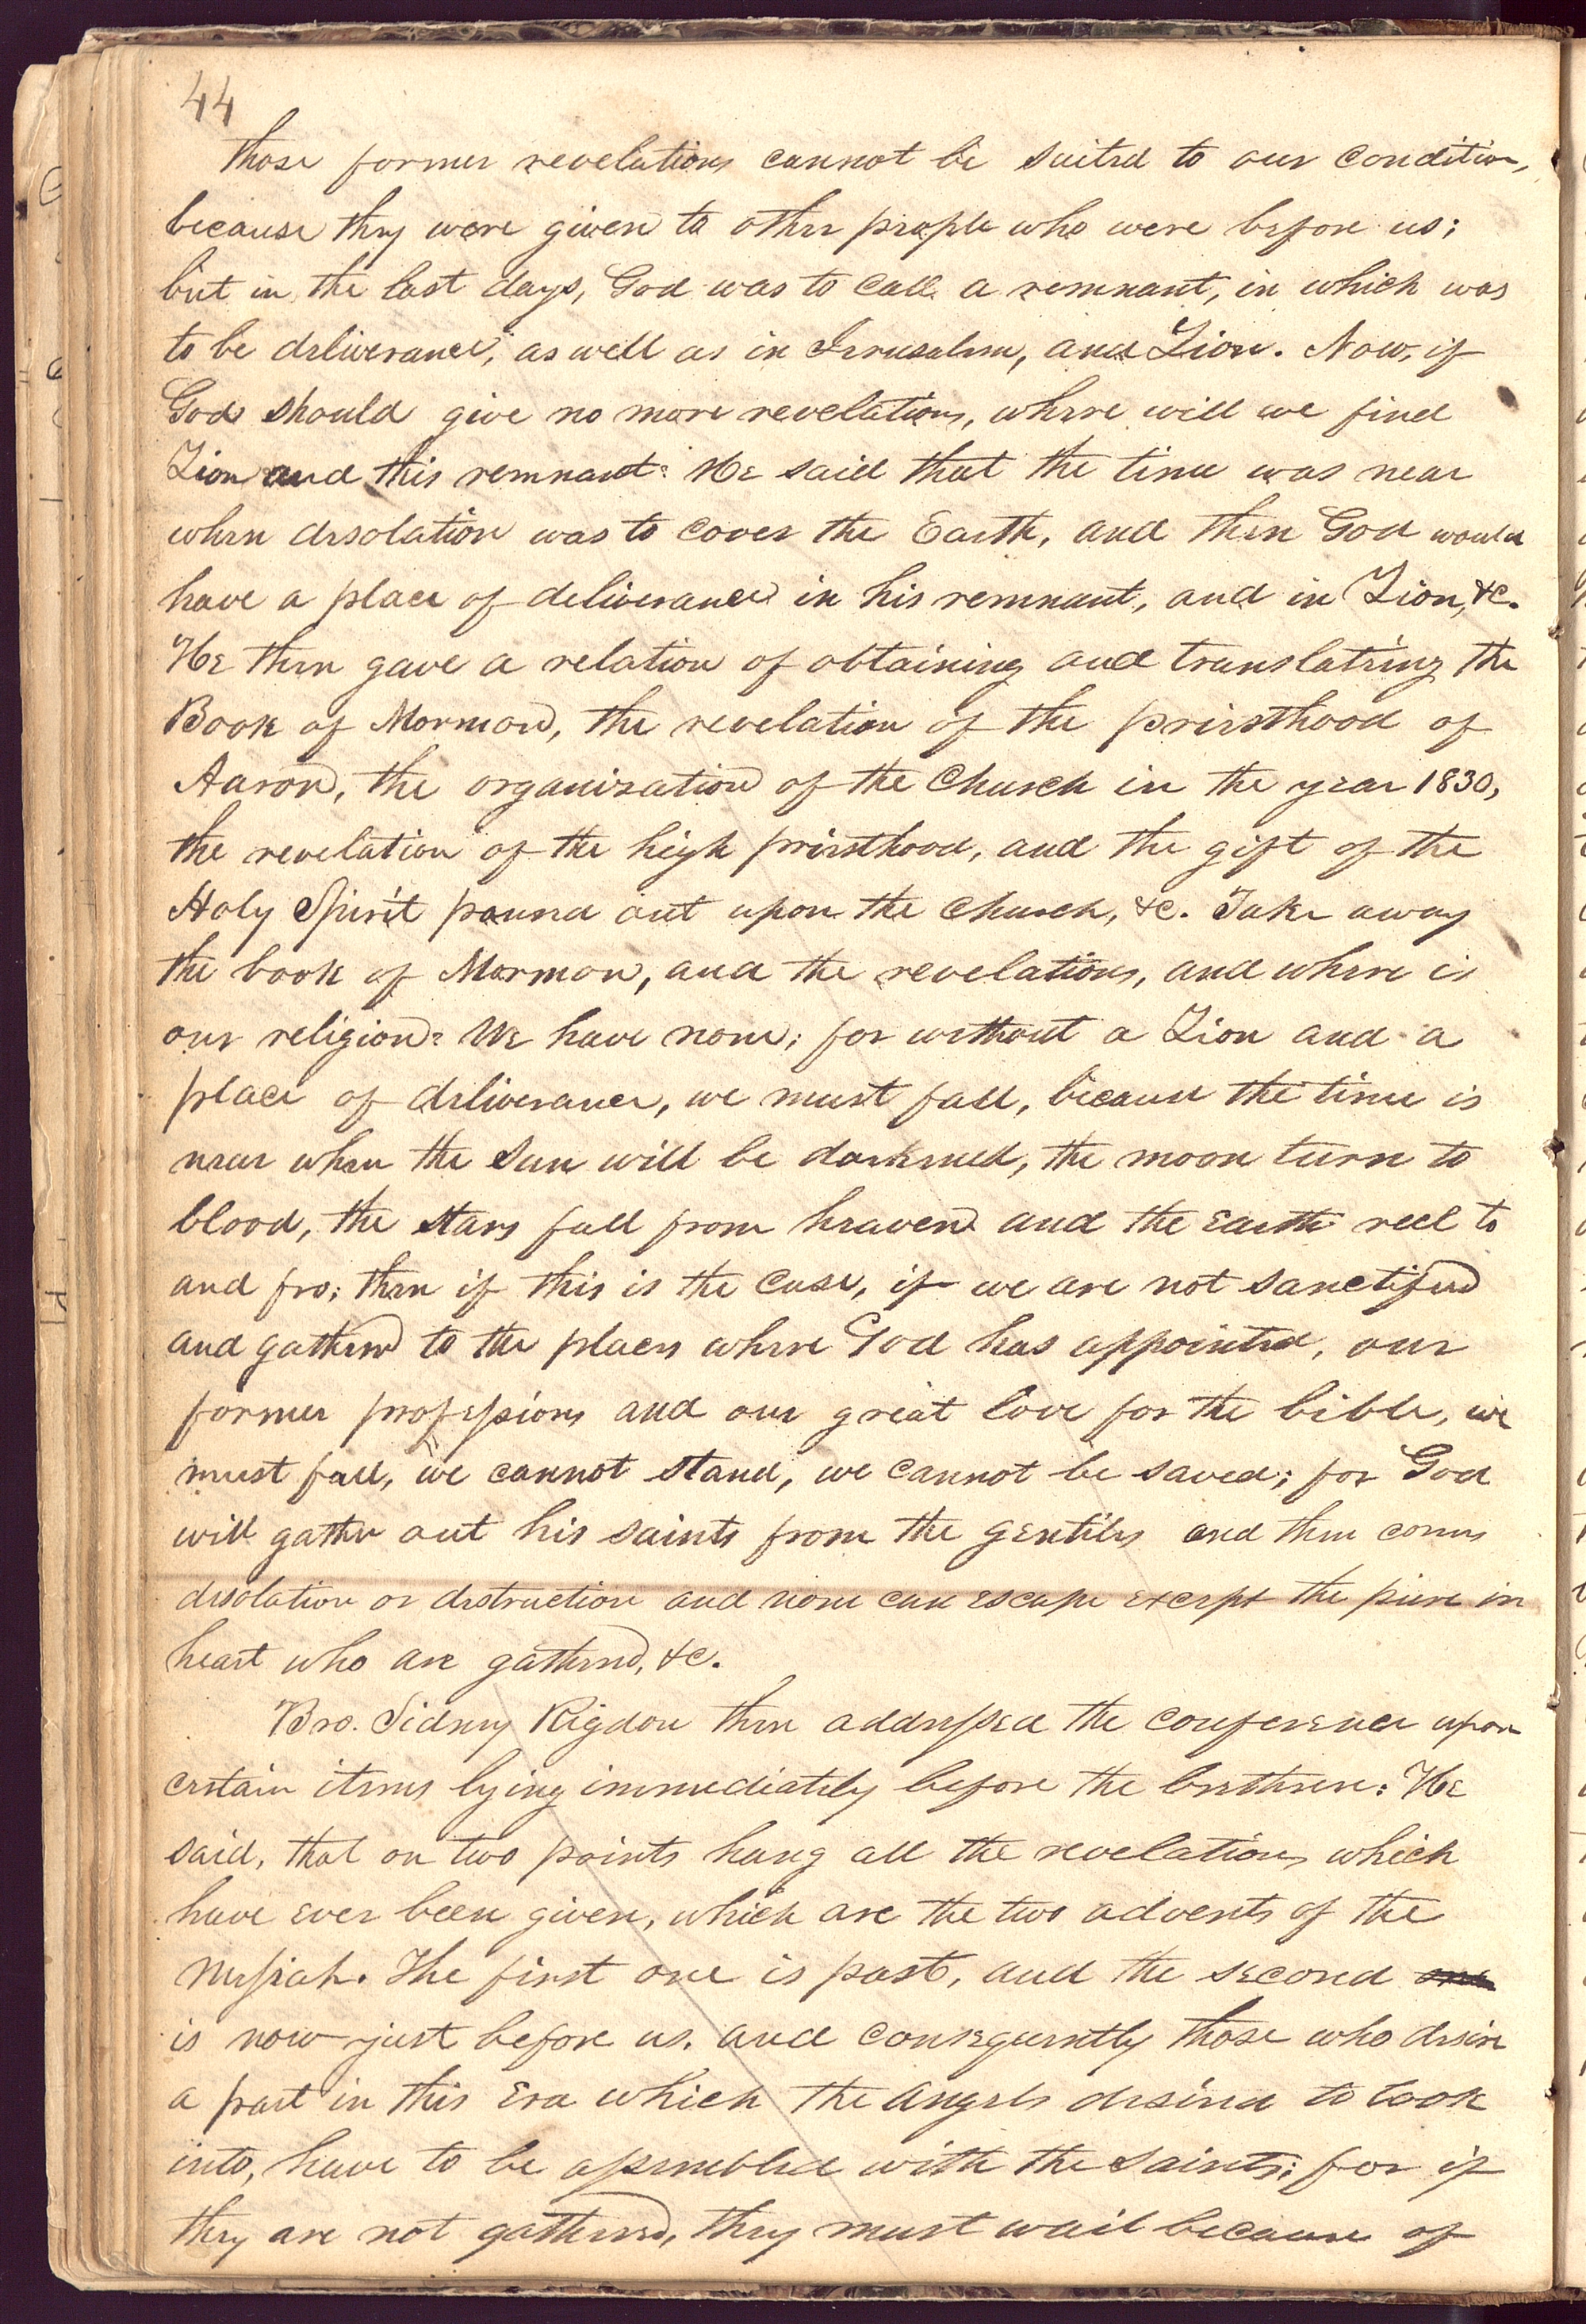 44
those former revelations cannot be suited to our condition,
because they were given to other people who were before us;
but in the last days, God was to call a remnant, in which was
to be deliverance, as well as in Jerusalem, and Zion. Now, if
God should give no more revelations, where will we find
Zion and this remnant? He said that the time was near
when desolation was to cover the Earth, and then God would
have a place of deliverance in his remnant, and in Zion, &c.
He then gave a relation of obtaining and translating the
Book of Mormon, the revelation of the priesthood of
Aaron, the organization of the Church in the year 1830,
the revelation of the high priesthood, and the gift of the
Holy Spirit poured out upon the church, &c. Take away
the book of Mormon, and the revelations, and where is
our religion? We have none; for without a Zion and a
place of deliverance, we must fall, because the time is
near when the Sun will be darkened, the moon turn to
blood, the stars fall from heaven and the earth reel to
and fro; then if this is the case, if we are not sanctified
and gathered to the places where God has appointed, our
former professions and our great love for the bible, we
must fall, we cannot stand, we cannot be saved; for God
will gather out his saints from the gentiles and then comes
desolation or destruction and none can escape except the pure in
heart who are gathered, &c.
Bro. Sidney Rigdon then addressed the conference upon
certain items lying immediately before the brethren: He
said, that on two points hang all the revelations which
have ever been given, which are the two advents of the
Messiah. The first one is past, and the second one
is now just before us. and consequently those who desire
a part in this Era which the angels desired to look
into, have to be assembled with the Saints; for if
they are not gathered, they must wail because of